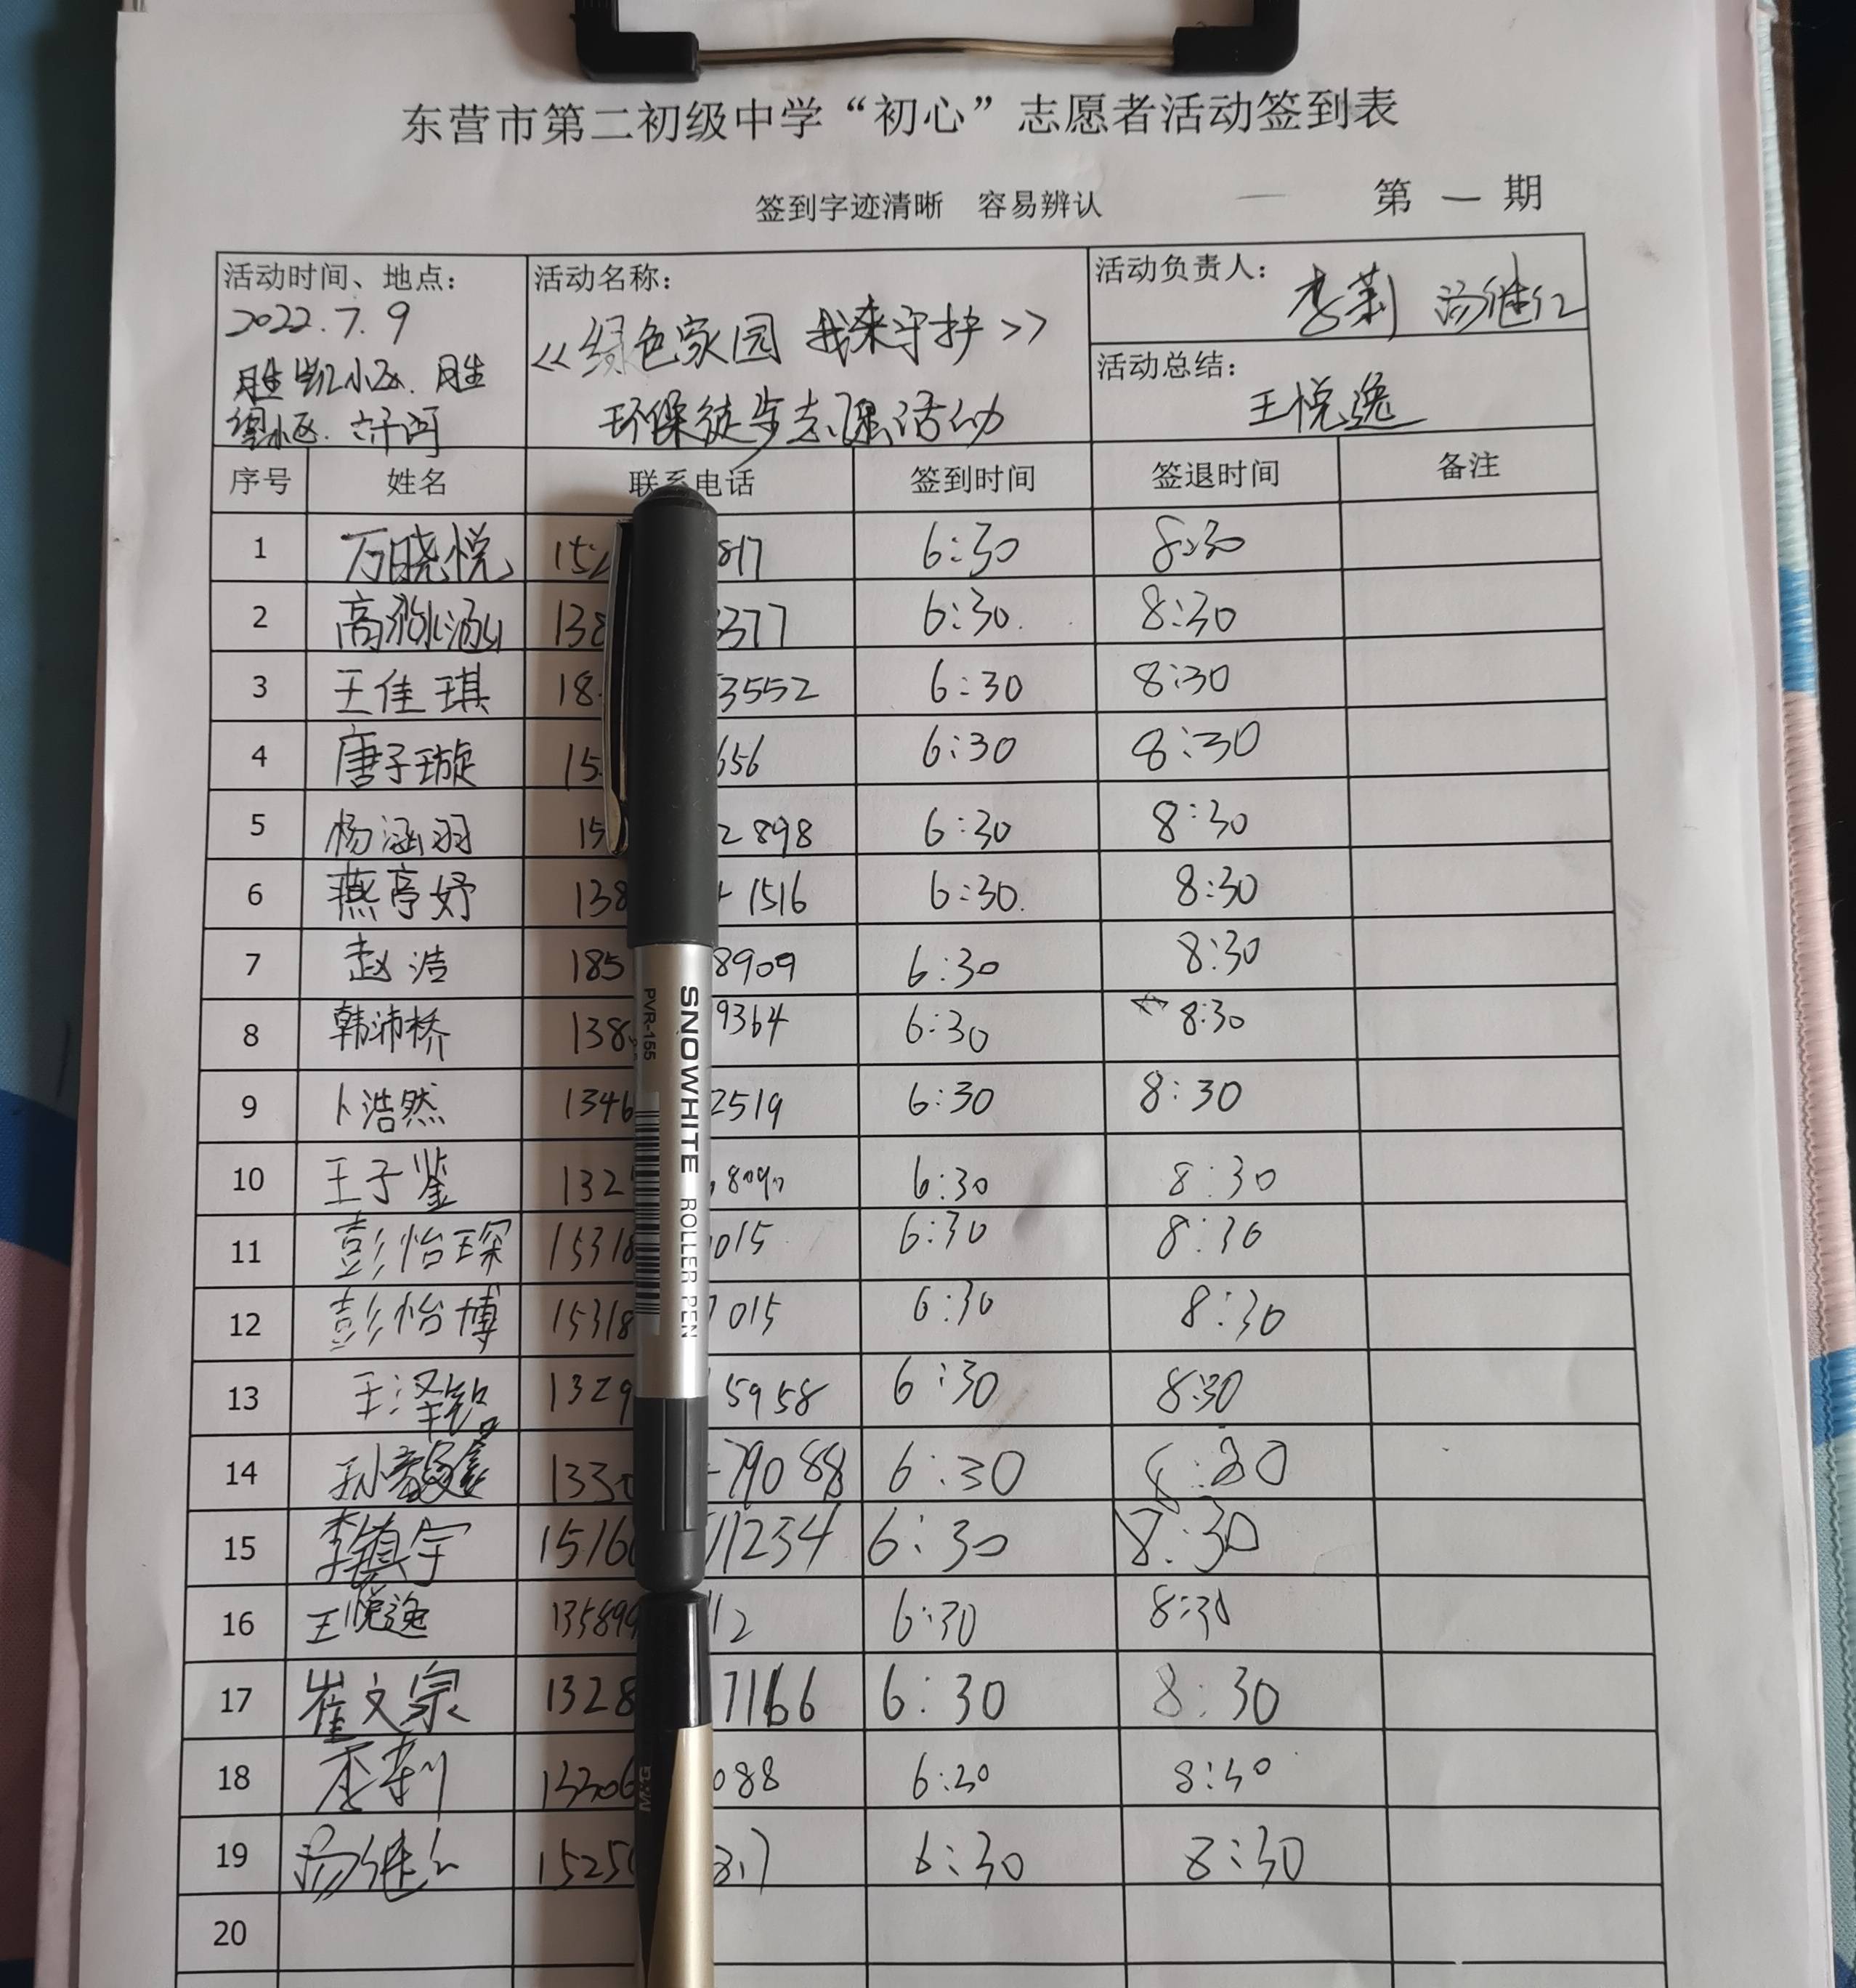 东营市第二初级中学“初心”志愿者活动签到表
签到字迹清晰 容易辨认
第 一 期
活动时间、地点:
2022.7.9
胜凯小区. 胜
小区. 六干河
活动名称:
《绿色家园 我来守护》
环保徒步志愿活动
活动负责人:
李莉 汤继红
活动总结:
王悦逸
序号 姓名 联系电话 签到时间 签退时间 备注
1 万晓悦 152 817 6:30 8:30
2 高 涵 138 3377 6:30 8:30
3 王佳琪 18 3552 6:30 8:30
4 唐子璇 15 656 6:30 8:30
5 杨涵羽 15 2898 6:30 8:30
6 燕亭妤 138 1516 6:30 8:30
7 赵洁 185 8909 6:30 8:30
8 韩沛桥 138 9364 6:30 8:30
9 卜浩然 1346 2519 6:30 8:30
10 王子鉴 132 6:30 8:30
11 彭怡琛 15318 015 6:30 8:30
12 彭怡博 15318 7015 6:30 8:30
13 王泽铭 1329 5958 6:30 8:30
14 孙 鑫 1330 79088 6:30 8:30
15 李镇宇 1516 11234 6:30 8:30
16 王悦逸 135899 112 6:30 8:30
17 崔文宗 1328 7166 6:30 8:30
18 李莉 13306 088 6:30 8:30
19 汤继红 1525 817 6:30 8:30
20
SNOWHITE ROLLER PEN
PVR-155
M&G